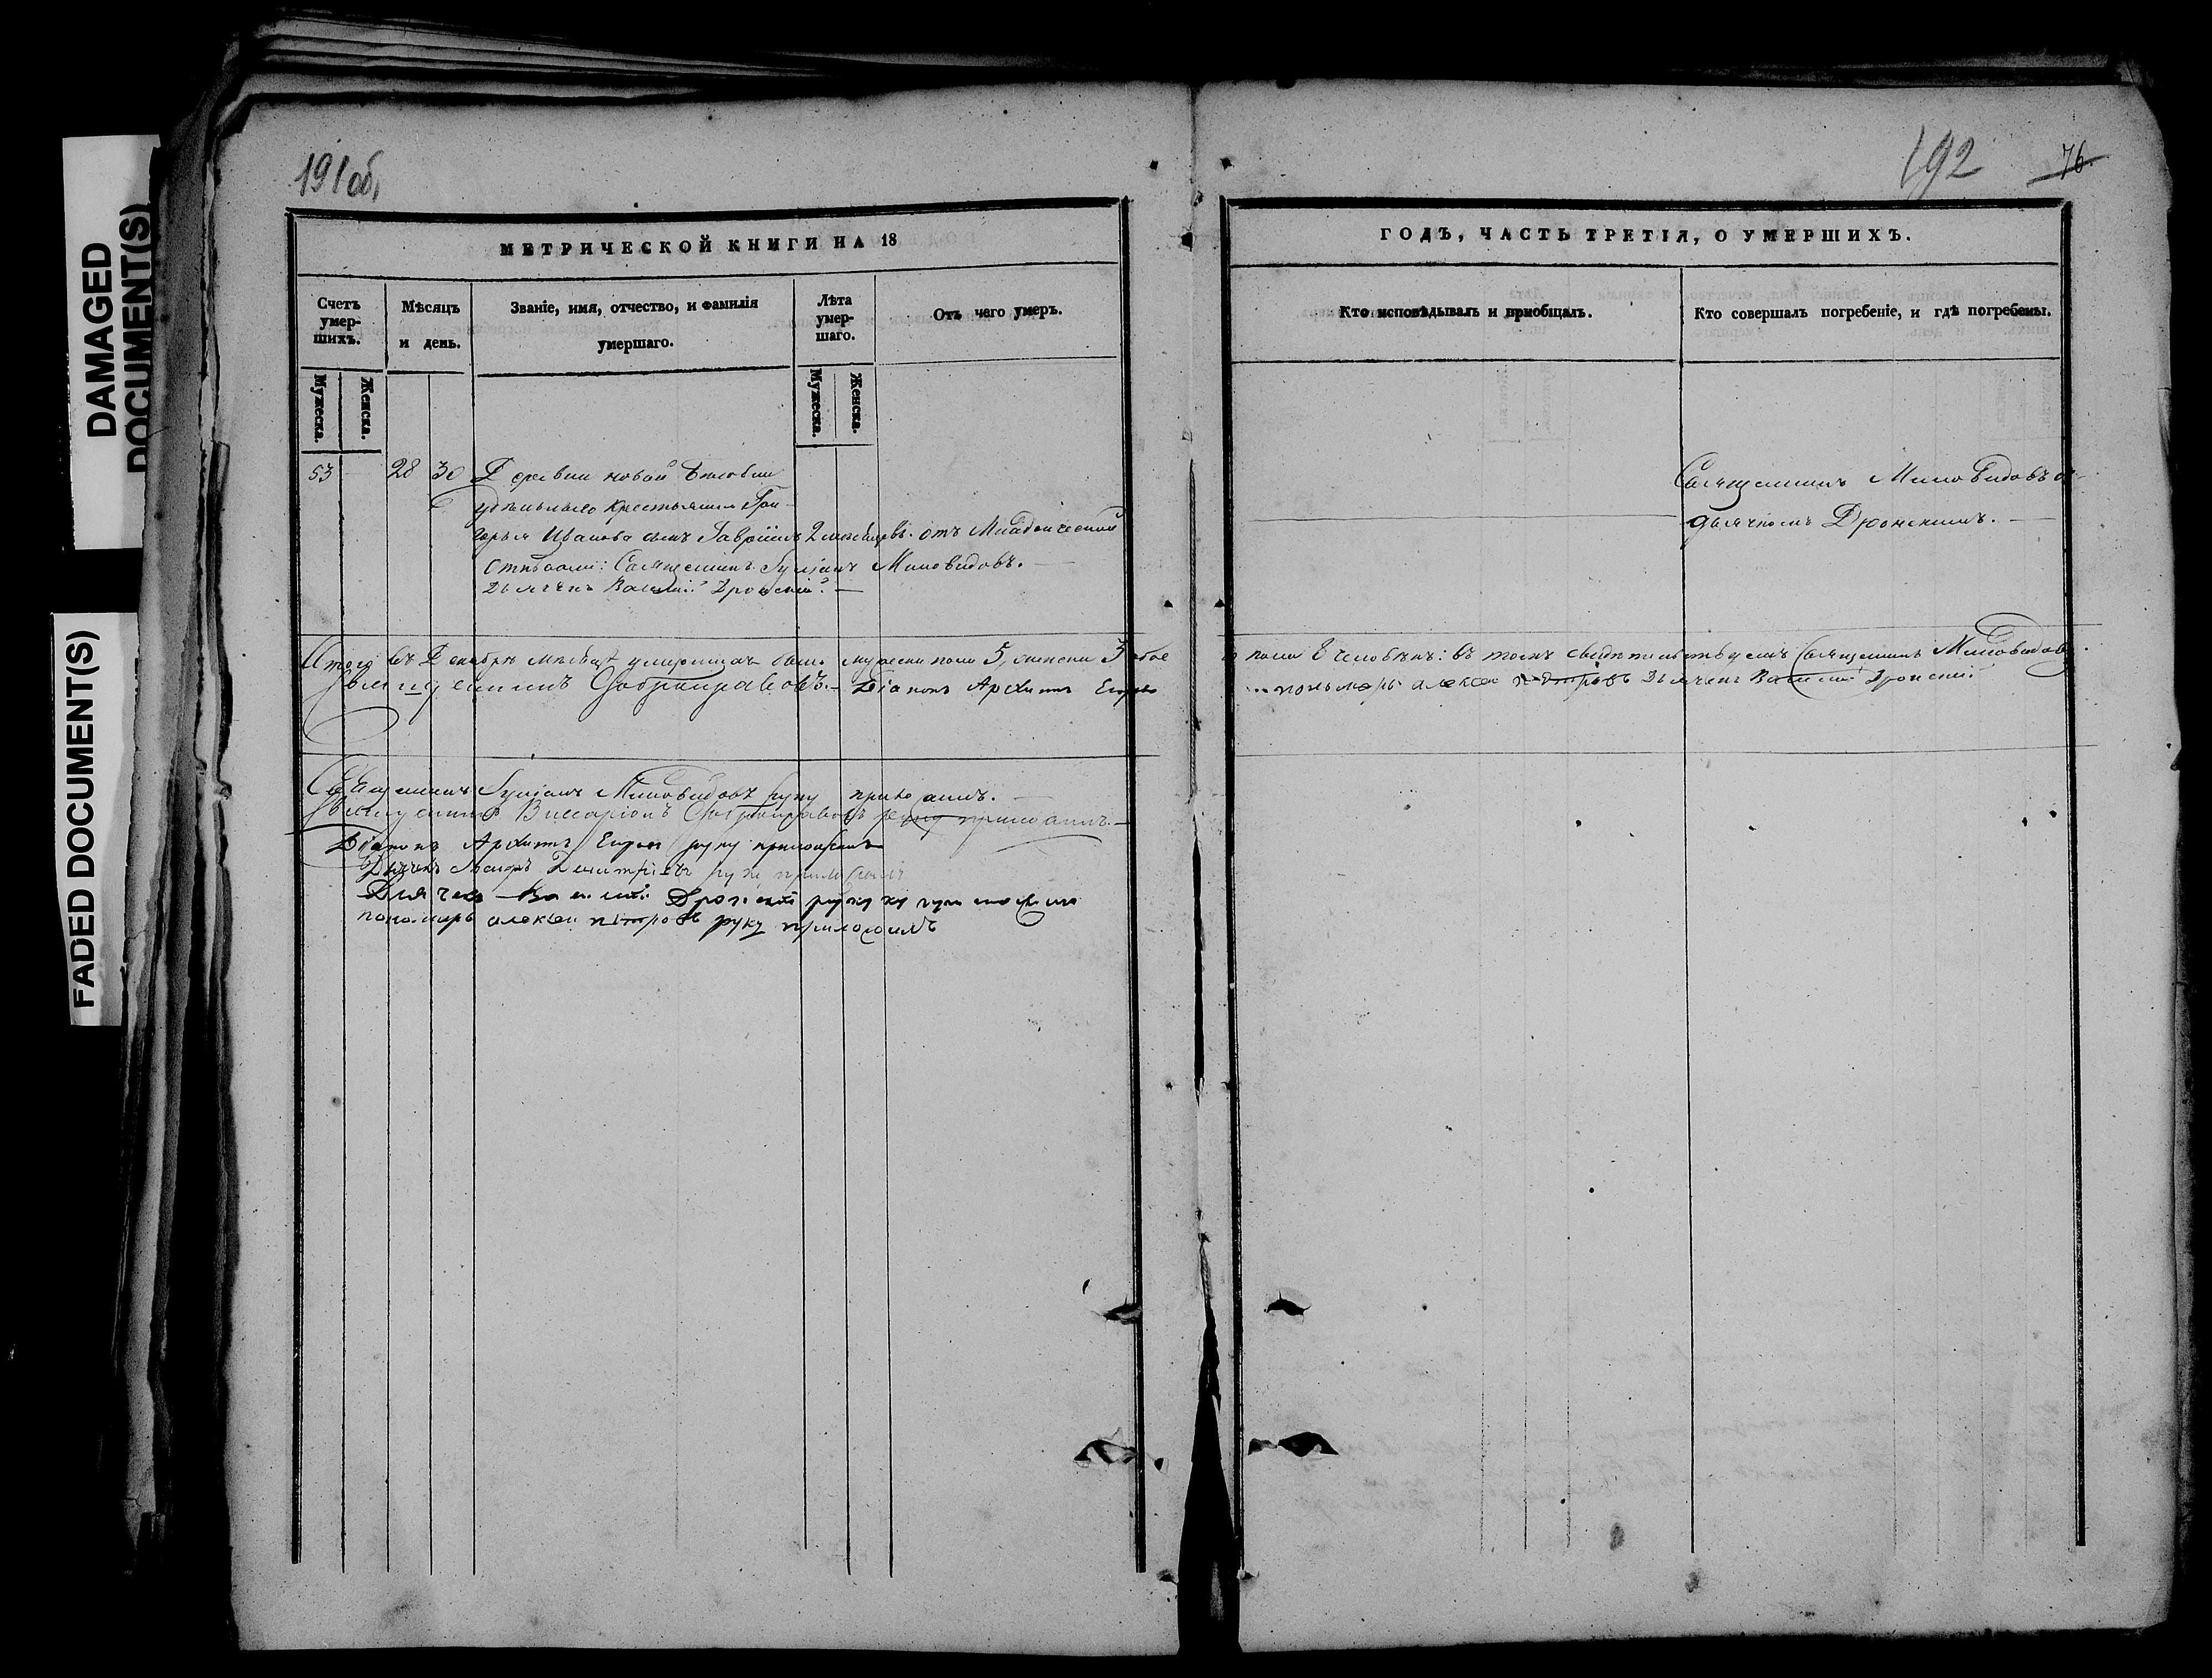 DAMAGED
DOCUMENT(S)
FADED DOCUMENT(S)
191 об,
МЕТРИЧЕСКОЙ КНИГИ НА 18
Счетъ умер-шихъ.
Мѣсяцъ и день.
Званіе, имя, отчество, и фамилія умершаго.
Лѣта умер-шаго.
Отъ чего умеръ.
Мужеска.
Женска.
Мужеска.
Женска.
53 28 30 Деревни новой
удѣльнаго крестьянина Гри-
горья Иванова сынъ Гавріилъ 2 мѣсяцевъ. отъ Младенческой
Отпѣвали: Священникъ Миловидовъ.
Дьячекъ Василій Дронскій.
Итого въ Декабрѣ мѣсяцѣ умершихъ было мужеска пола 5, женска 3 обое
Священникъ Діаконъ Архипъ
Священникъ Миловидовъ руку приложилъ.
Священникъ Виссаріонъ руку приложилъ.
Діаконъ Архипъ руку приложилъ
Дьячекъ Димитріевъ руку приложилъ
Дьячекъ Василій Дронскій руку приложилъ
пономарь алексеи петровъ руку приложилъ
192
76.
ГОДЪ, ЧАСТЬ ТРЕТІЯ, О УМЕРШИХЪ.
Кто исповѣдывалъ и пріобщалъ.
Кто совершалъ погребеніе, и гдѣ погребены.
Священникъ Миловидовъ съ
дьячкомъ Дронскимъ.
пола 8 человѣкъ: въ томъ свидѣтельствуемъ Священникъ Миловидовъ.
пономарь алексеи петровъ Дьячекъ Василій Дронскій